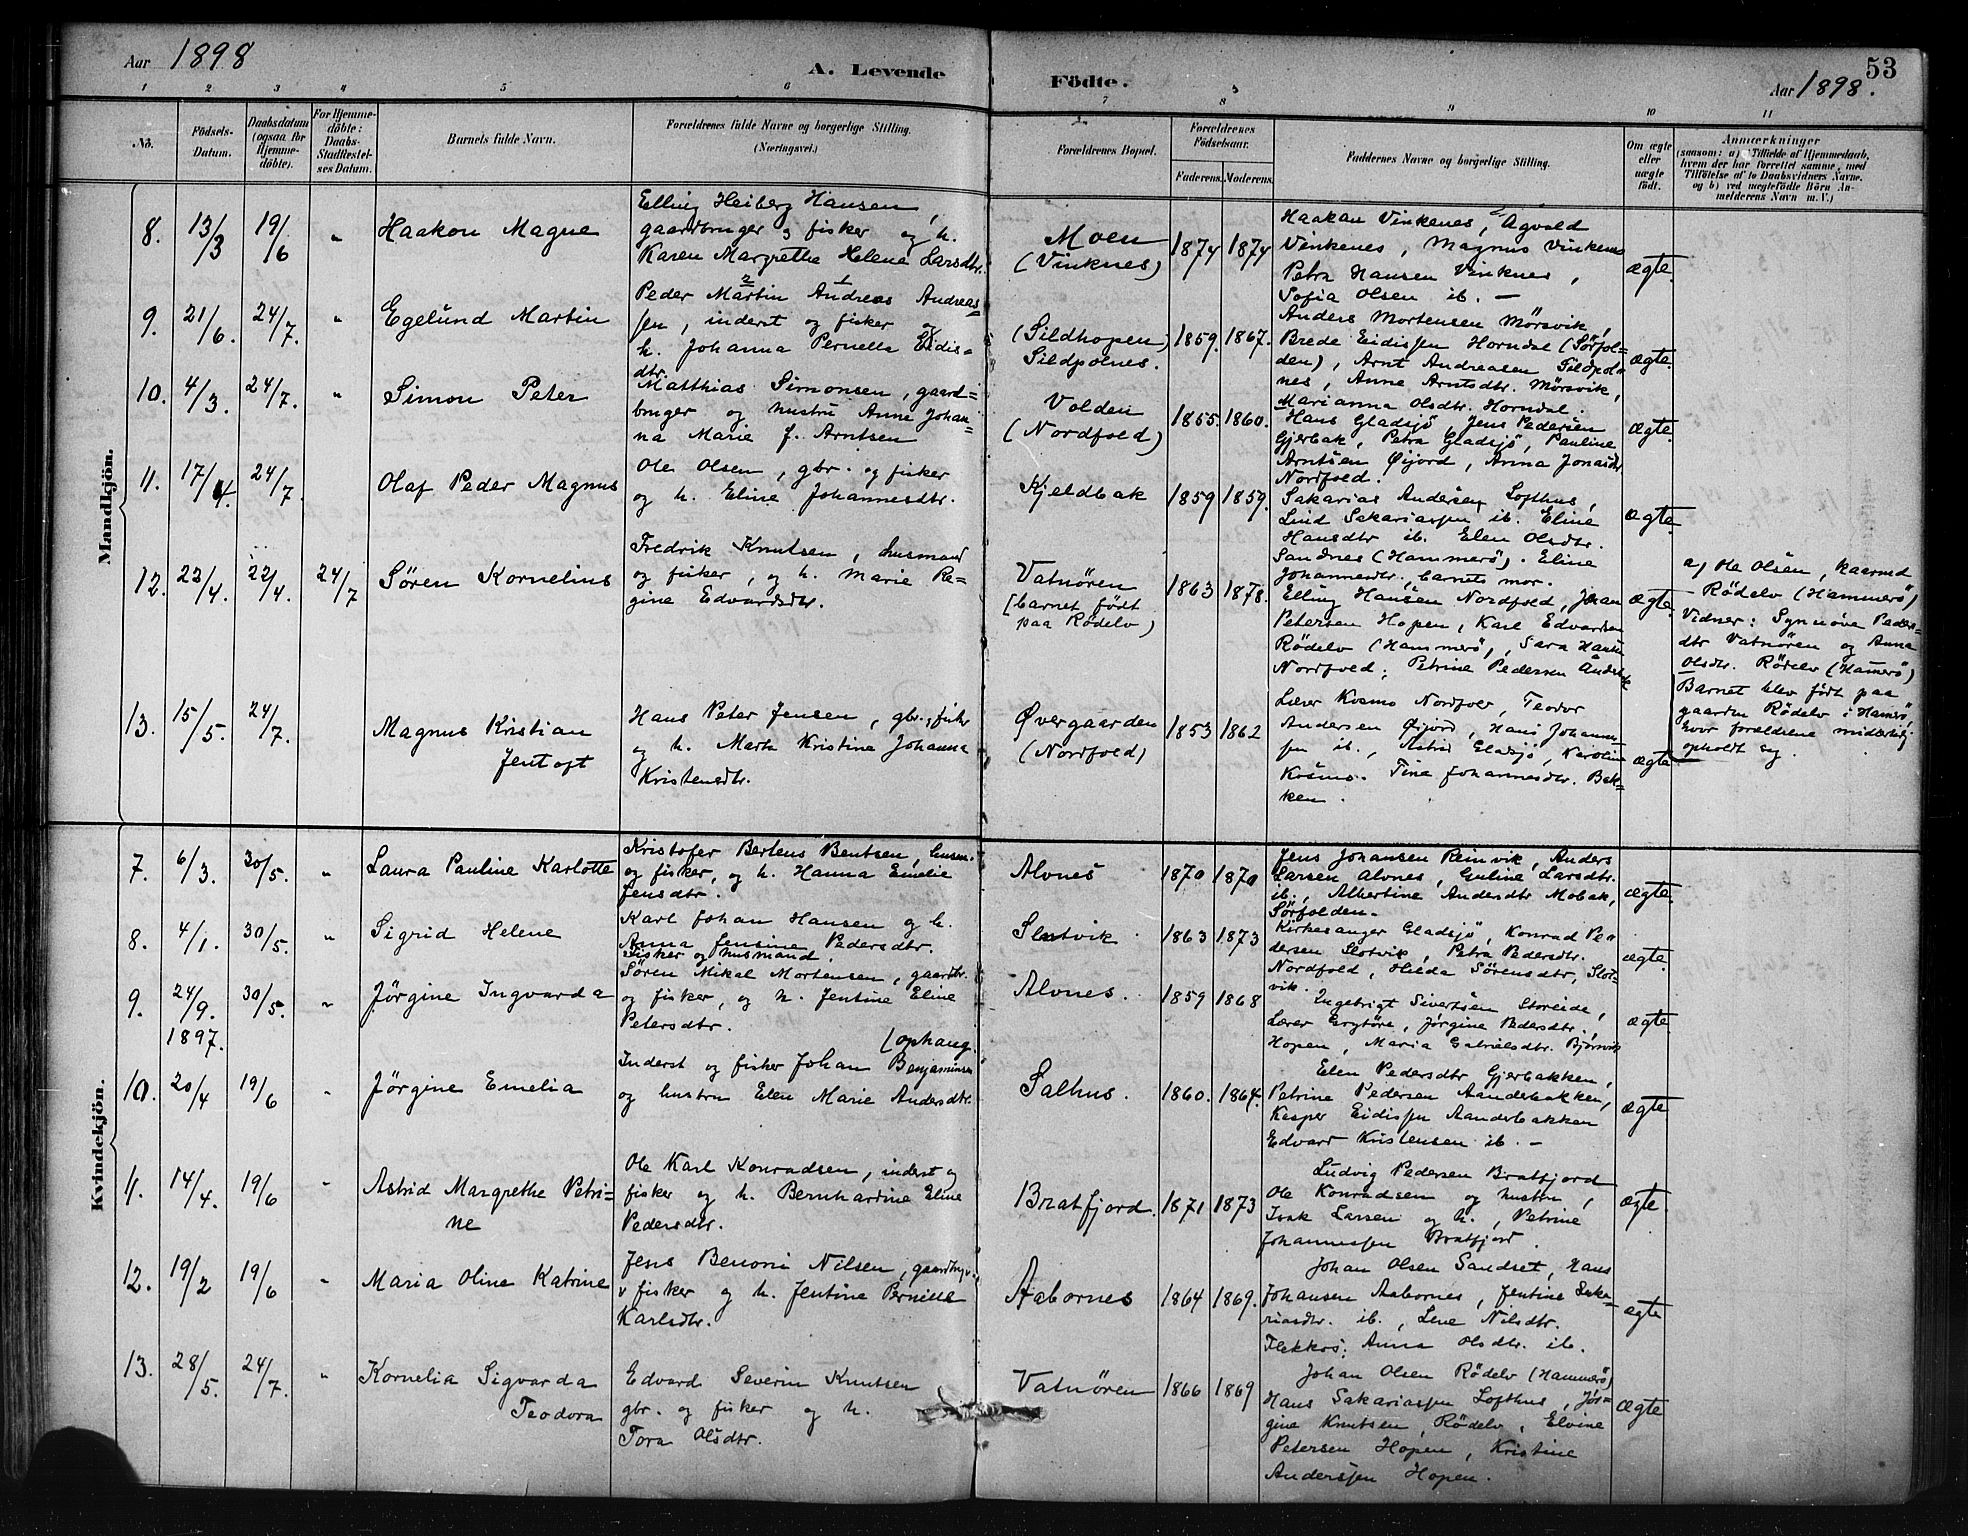 53
Aar 1898
A. Levende
Födte.
Aar 1898.
1 2 3 4 5 6 7 8 9 10 11
No.
Födsels-
Datum.
Daabsdatum
(ogsaa for
Hjemme-
döbte).
For Hjemme-
döbte:
Daabs-
Stadfæstel-
ses Datum.
Barnets fulde Navn.
Forældrenes fulde Navne og borgerlige Stilling.
(Næringsvei.)
Forældrenes Bopæl.
Forældrenes
Födselsaar.
Faderens. Moderens.
Faddernes Navne og borgerlige Stilling.
Om ægte
eller
uægte
födt.
Anmærkninger
(saasom: a) i Tilfælde af Hjemmedaab,
hvem der har forrettet samme, med
Tilföielse af to Daabsvidners Navne.
og b) ved uægtefödte Börn An-
melderens Navn m. V.)
Mandkjön.
8. 13/3 19/6 "
Haakon Magne
Elling Heiberg Hansen,
gaardbruger & fisker og h.
Karen Margrethe Helene Larsdtr.
Moen
(Vinknes)
1874 1874
Haakon Vinkenes, Agvald
Vinkenes, Magnus Vinkenes
Petra Hansen Vinknes,
Sofia Olsen ib. —
ægte.
9. 21/6. 24/7. "
Egelund Martin
Peder Martin Andreas Andreas
sen, inderst og fisker og
h. Johanna Pernella Eidis-
dtr.
(Sildhopen)
Sildpolnes.
1859. 1867.
Anders Mortensen Mörsvik,
Brede Eidissen Horndal (Sörfol-
den), Arnt Andreasen Sildpol-
nes, Anne Arntsdtr. Mörsvik,
Marianna Olsdtr. Horndal.
ægte.
10. 4/3. 24/7. "
Simon Peter
Matthias Simonsen, gaard-
bruger og hustru Anne Johan-
na Marie f. Arntsen
Volden
(Nordfold)
1855. 1860.
Hans Gladsjö, Jens Pedersen
Gjerbak, Petra Gladsjö, Pauline
Arntsen Øijord, Anna Jonasdtr
Nordfold.
ægte.
11. 17/4. 24/7.
Olaf Peder Magnus
Ole Olsen, gbr. og fisker
og h. Eline Johannesdtr.
Kjeldbak
1859 1859.
Sakarias Andersen Lofthus,
Lind Sakariassen ib. Eline
Hansdtr ib. Elen Olsdtr.
Sandnes (Hammerö). Eline
Johannesdtr., barnets mor.
ægte.
12. 22/4. 22/4. 24/7
Sören Kornelius
Fredrik Knutsen, husmand
og fisker, og h. Marie Re-
gine Edvardsdtr.
Vatnören
[barnet födt
paa Rödelv)
1863 1878.
Elling Hansen Nordfold, Johan
Petersen Hopen, Karl Edvardsen
Rödelv (Hammerö, Sara Hansen
Nordfold; Petrine Pedersen
ægte.
a) Ole Olsen, kaarmd
Rödelv (Hammerö)
Vidner: Synnöve Peders-
dtr Vatnören og Anna
Olsdtr. Rödelv (Hamerö)
Barnet blev födt paa
gaarden Rödelv i Hamerö,
hvor forældrene midlertidig
opholdt sig.
13. 15/5. 24/7.
Magnus Kristian
Jentoft
Hans Peter Jensen, gbr. & fisker
og h. Marth Kristine Johanna
Kristensdtr.
Øvergaarden
(Nordfold)
1853 1862
Lærer Kosmo Nordfold, Teodor
Andersen Øijord, Hans Johans-
sen ib., Astrid Gladsjö, Karoline
Kosmo. Tina Johannesdtr. Bak-
ken.
ægte.
Kvindekjön.
7. 6/3. 30/5. "
Laura Pauline Karlotte
Kristofer Bertens Bentsen, husm.
og fisker, og h. Hanna Emelie
Jensdtr.
Alvnes
1870 1870
Jens Johansen Reinvik, Anders
Larsen Alvnes, Guline Larsdtr.
ib., Albertine Andersdtr Mobak,
Sörfolden.
ægte.
8. 4/1. 30/5. "
Sigrid Helene
Karl Johan Hansen og h.
Anna Jensine Pedersdtr.
Fisker og husmand.
Slotvik
1863 1873
Kirkesanger Gladsjö, Konrad Pe-
dersen Slotvik, Petra Pedersdtr.
Nordfold, Hilda Sörensdtr, Slot-
vik.
ægte.
9. 24/9. 1897. 30/5. "
Jörgine Ingvarda
Sören Mikal Mortensen, gaardbr.
og fisker, og h. Jentine Eline
Petersdtr.
Alvnes.
1859 1868
Ingebrigt Sivertsen Storeide,
Lærer Grytöre, Jörgine Pedersdtr.,
Hopen, Maria Gabrielsdtr. Björnvik
ægte
10. 20/4 19/6 "
Jörgine Emelia
(ophang.
Inderst og fisker Johan Benjaminsen
og hustru Elen Marie Andersdtr.
Salhus.
1860. 1864.
Elen Pedersdtr Gjerbakken,
Petrine Pedersen Aanderbakken,
Kasper Eidissen Aanderbakken
Edvard Kristensen ib. —
ægte
11. 14/4. 19/6 "
Astrid Margrethe Petri-
ne
Ole Karl Konradsen, inderst og
fisker og h. Bernhardine Eline
Pedersdtr.
Bratfjord.
1871 1873
Ludvig Pedersen Bratfjord
Ole Konradsen og hustru,
Isak Larsen og h., Petrine
Johannessen Bratfjord.
ægte.
12. 19/2 19/6 "
Maria Oline Katrine
Jens Benoni Nilsen, gaardbr.
v fisker og h. Jentine Pernille
Karlsdtr.
Aabornes
1864 1869.
Johan Olsen Sandset, Hans
Johansen Aabornes, Jentine Saka-
riasdtr. ib., Lene Nilsdtr.
Flekkos; Anna Olsdtr. ib.
ægte
13. 28/5. 24/7. "
Kornelia Sigvarda
Teodora
Edvard Severin Knutsen
gbr. og fisker og h.
Tora Olsdtr.
Vatnören
1866 1869
Johan Olsen Rödelv (Hammerö)
Hans Sakariassen Lofthus, Jör-
gine Knutsen, Rödelv, Elvine
Petersen Hopen, Kristine
Anderssen Hopen.
ægte